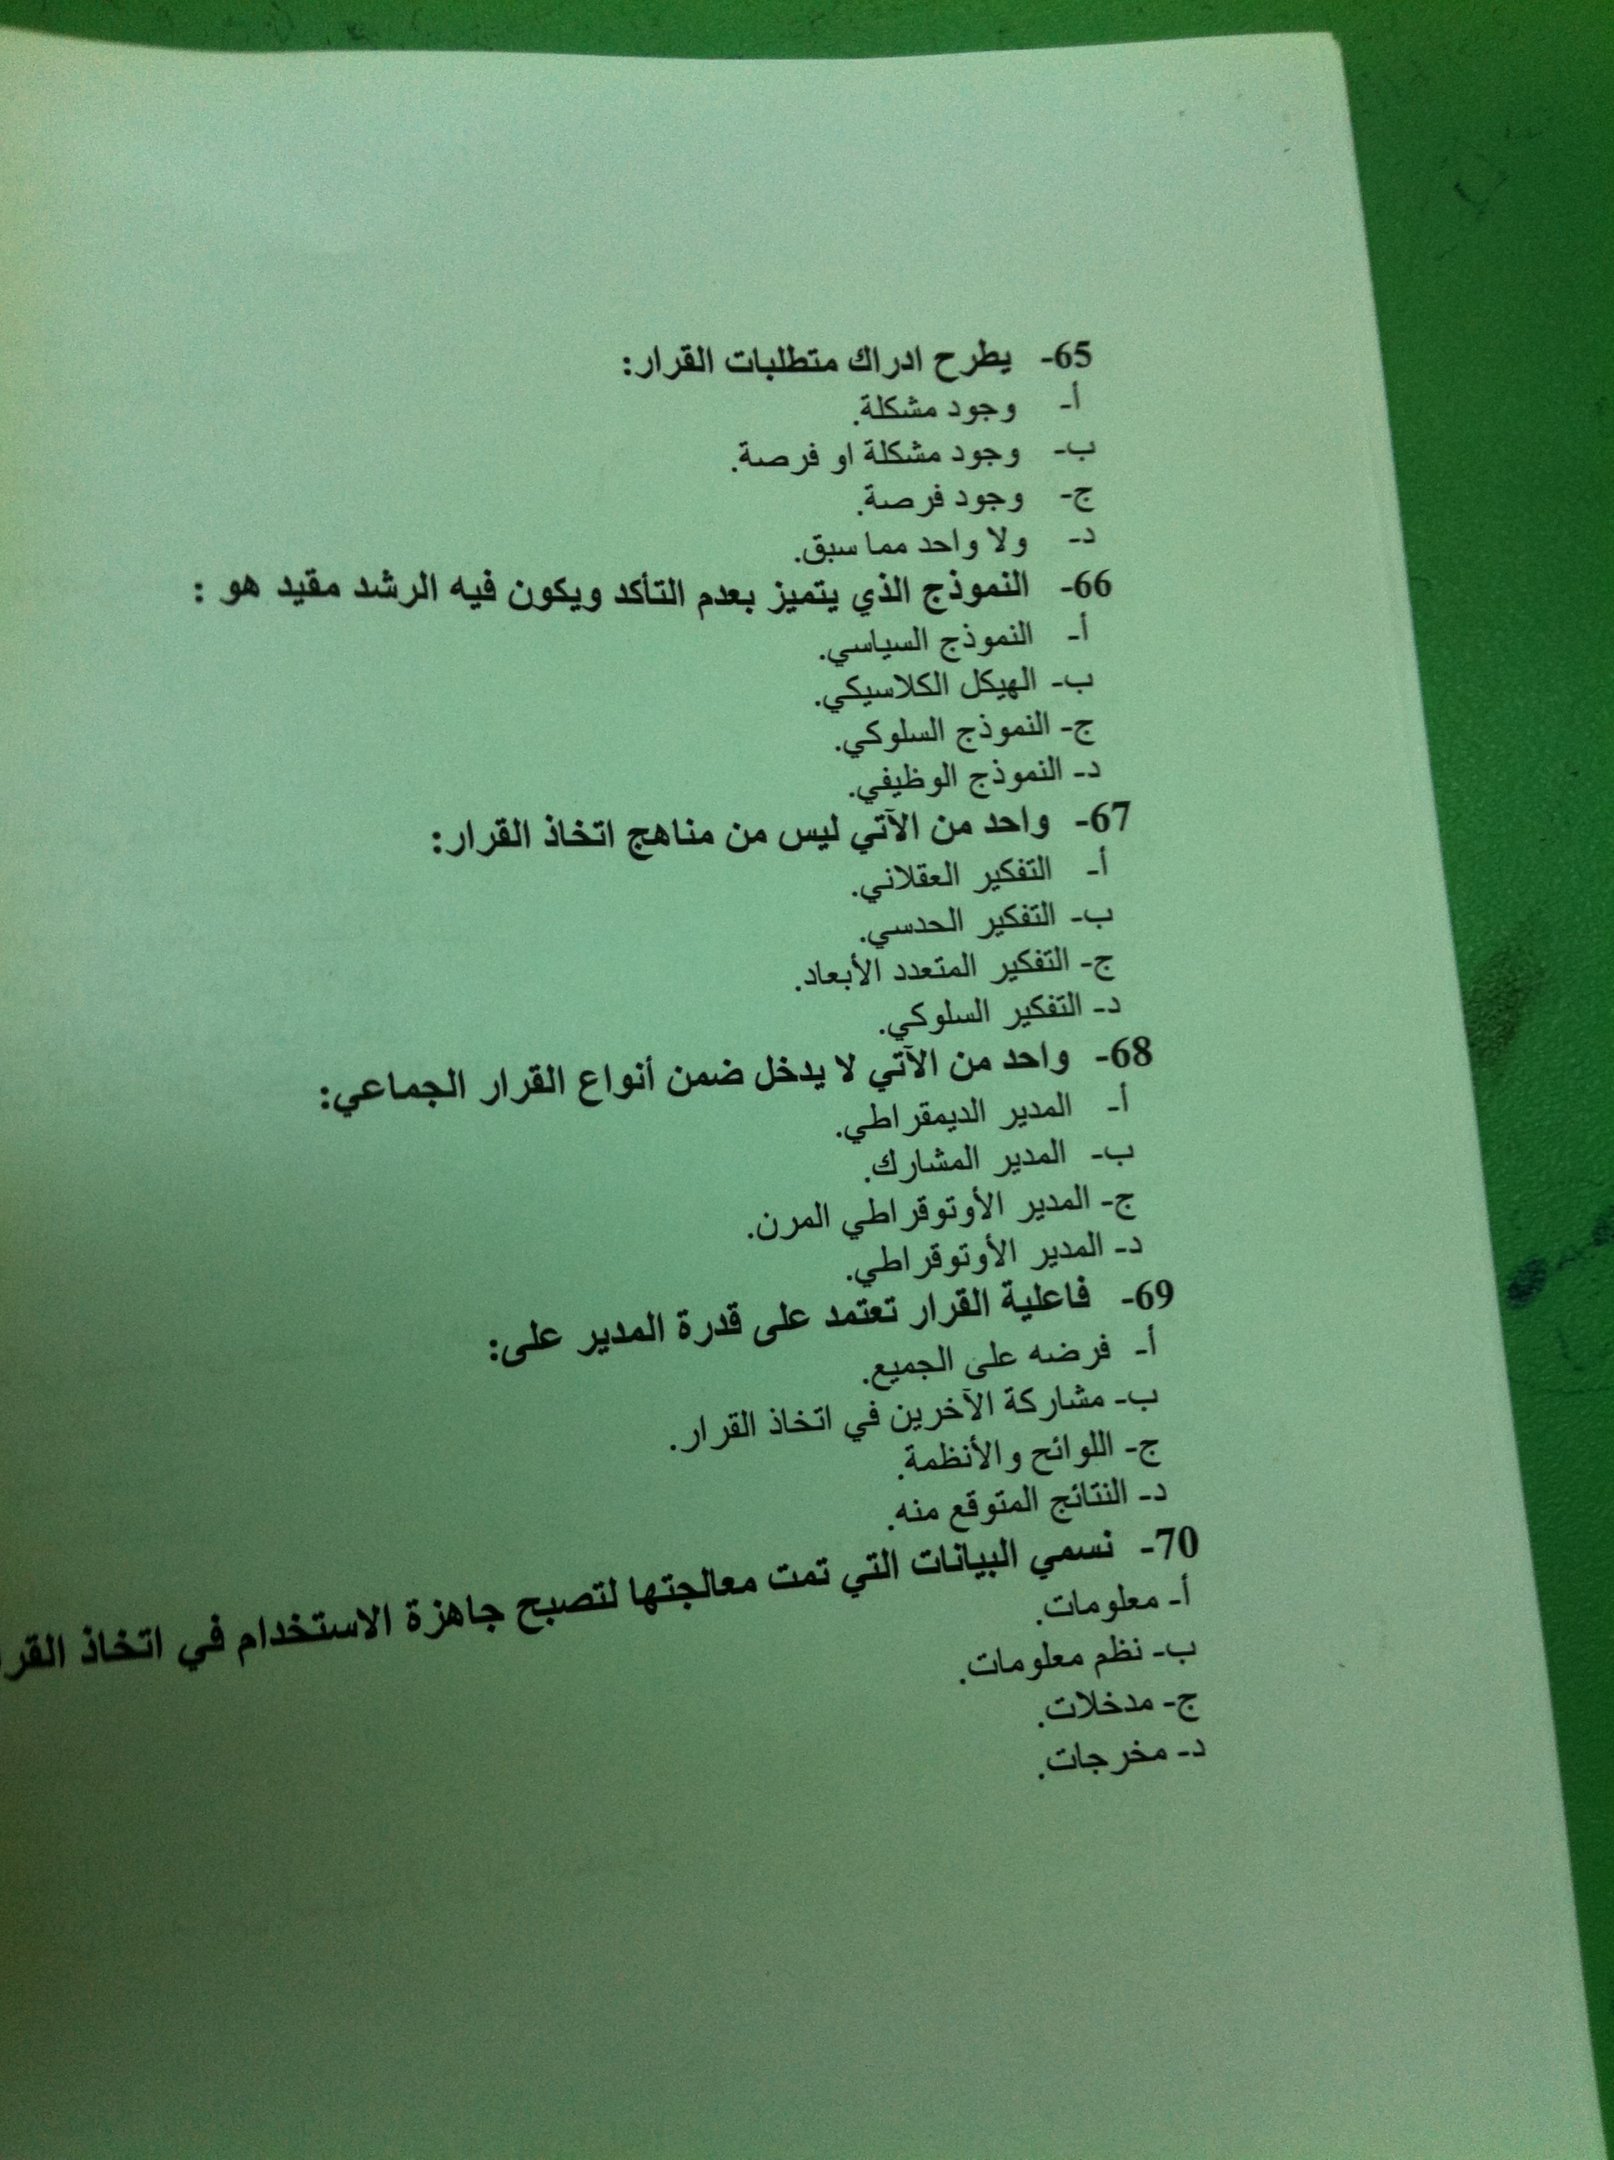 65- يطرح ادراك متطلبات القرار:
أ- وجود مشكلة.
ب- وجود مشكلة او فرصة.
ج- وجود فرصة.
د- ولا واحد مما سبق.
66- النموذج الذي يتميز بعدم التأكد ويكون فيه الرشد مقيد هو :
أ- النموذج السياسي.
ب- الهيكل الكلاسيكي.
ج- النموذج السلوكي.
د- النموذج الوظيفي.
67- واحد من الآتي ليس من مناهج اتخاذ القرار:
أ- التفكير العقلاني.
ب- التفكير الحدسي.
ج- التفكير المتعدد الأبعاد.
د- التفكير السلوكي.
68- واحد من الآتي لا يدخل ضمن أنواع القرار الجماعي:
أ- المدير الديمقراطي.
ب- المدير المشارك.
ج- المدير الأوتوقراطي المرن.
د- المدير الأوتوقراطي.
69- فاعلية القرار تعتمد على قدرة المدير على:
أ- فرضه على الجميع.
ب- مشاركة الآخرين في اتخاذ القرار.
ج- اللوائح والأنظمة.
د- النتائج المتوقع منه.
70- نسمي البيانات التي تمت معالجتها لتصبح جاهزة الاستخدام في اتخاذ
أ- معلومات.
ب- نظم معلومات.
ج- مدخلات.
د- مخرجات.